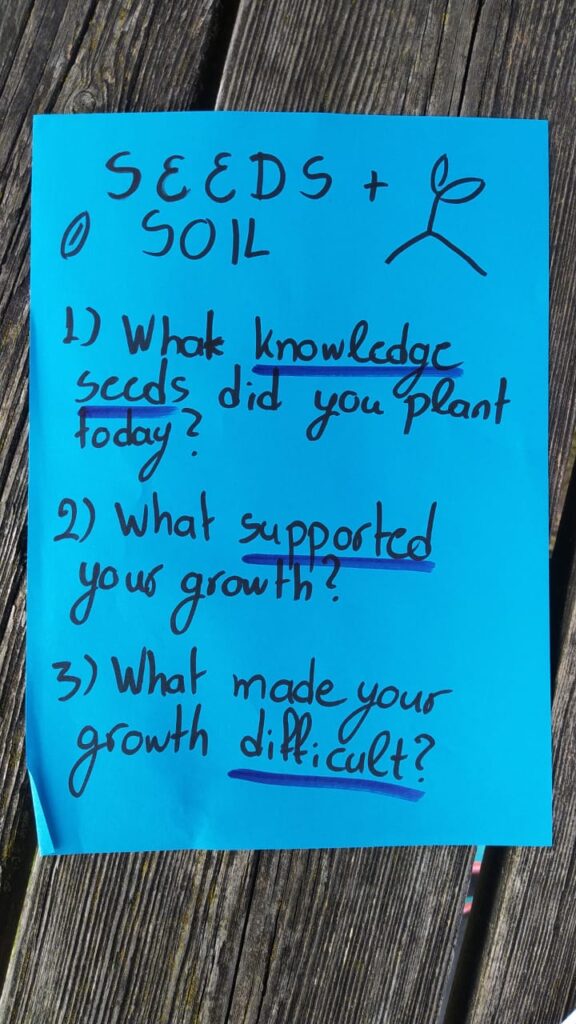 SEEDS +
SOIL
1) What knowledge
seeds did you plant
today?
2) What supported
your growth?
3) What made your
growth difficult?